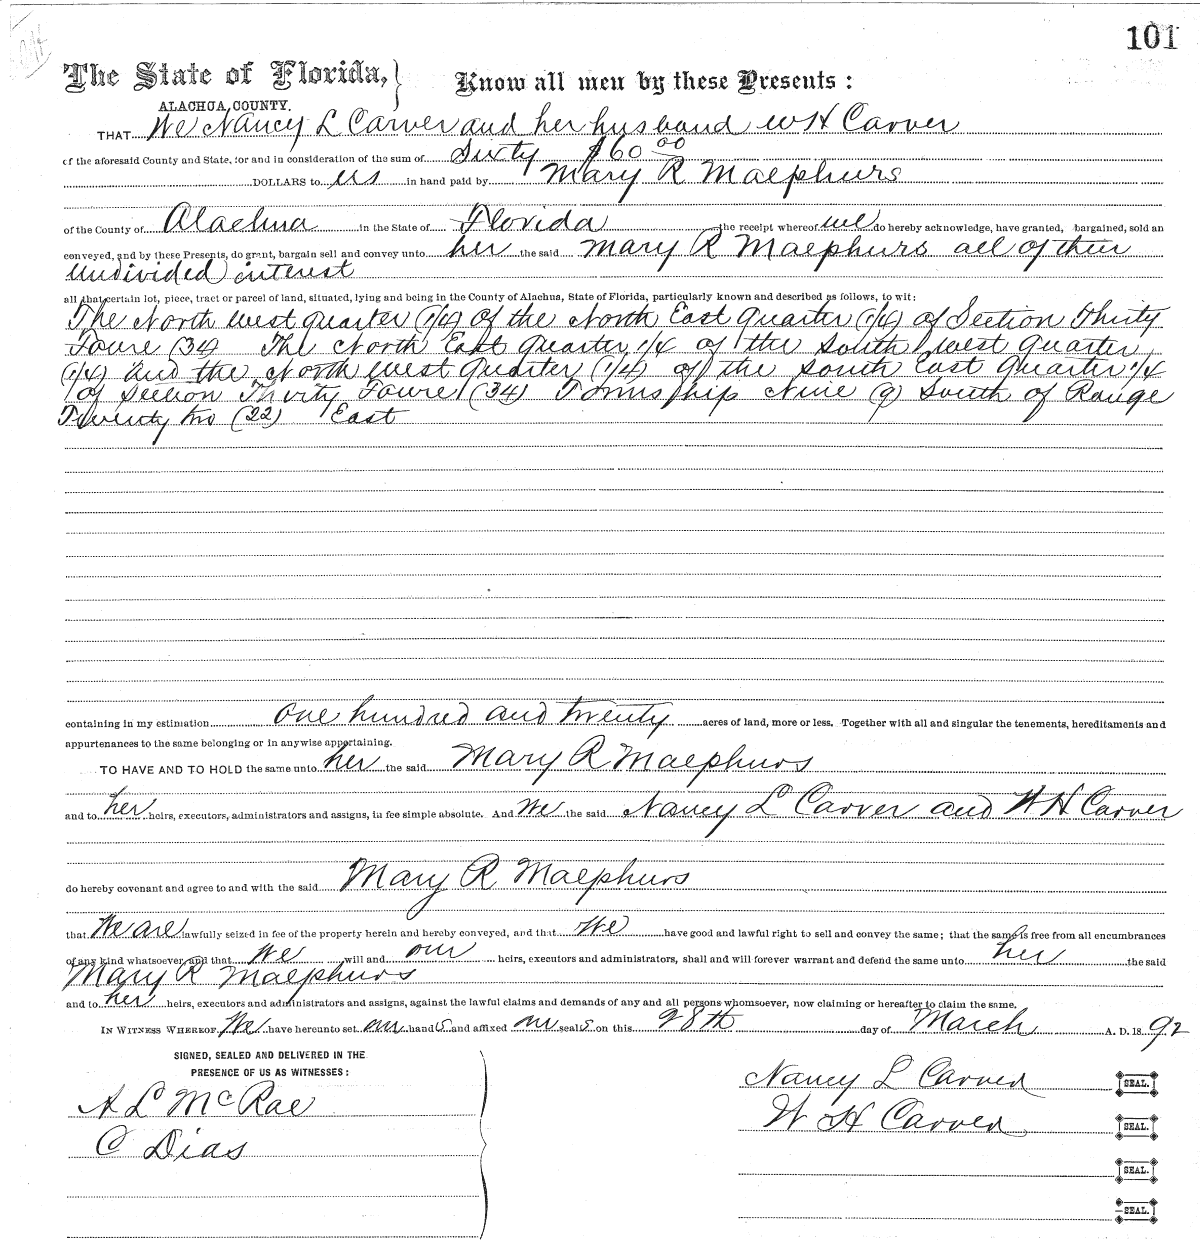 101
The State of Florida, Know all men by these Presents:
ALACHUA COUNTY.
THAT We Nancy L Carver and her husband W H Carver
of the aforesaid County and State, for and in consideration of the sum of Sixty $60 00
DOLLARS to us in hand paid by Mary R Maephurs
of the County of Alachua in the State of Florida the receipt whereof we do hereby acknowledge, have granted, bargained, sold an
conveyed, and by these Presents, do grant, bargain sell and convey unto her the said Mary R Maephurs all of their
undivided interest
all that certain lot, piece, tract or parcel of land, situated, lying and being in the County of Alachua, State of Florida, particularly known and described as follows, to wit:
The North west quarter (1/4) of the North East quarter (1/4) of Section Thirty
Foure (34) The North East quarter 1/4 of the South west quarter
(1/4) and the North west quarter (1/4) of the South East quarter 1/4
of Section Thirty Foure (34) Township Nine (9) South of Range
Twenty two (22) East
containing in my estimation one hundred and twenty acres of land, more or less. Together with all and singular the tenements, hereditaments and
appurtenances to the same belonging or in anywise appertaining.
TO HAVE AND TO HOLD the same unto her the said Mary R Maephurs
and to her heirs, executors, administrators and assigns, in fee simple absolute. And We the said Nancy L Carver and W H Carver
do hereby covenant and agree to and with the said Mary R Maephurs
that We are lawfully seized in fee of the property herein and hereby conveyed, and that We have good and lawful right to sell and convey the same; that the same is free from all encumbrances
of any kind whatsoever, and that We will and our heirs, executors and administrators, shall and will forever warrant and defend the same unto her the said
Mary R Maephurs
and to her heirs, executors and administrators and assigns, against the lawful claims and demands of any and all persons whomsoever, now claiming or hereafter to claim the same.
IN WITNESS WHEREOF, We have hereunto set our hands and affixed our seals on this 28th day of March A. D. 1892
SIGNED, SEALED AND DELIVERED IN THE
PRESENCE OF US AS WITNESSES:
Nancy L Carver SEAL.
A L McRae
W H Carver SEAL.
C Dias
SEAL.
SEAL.